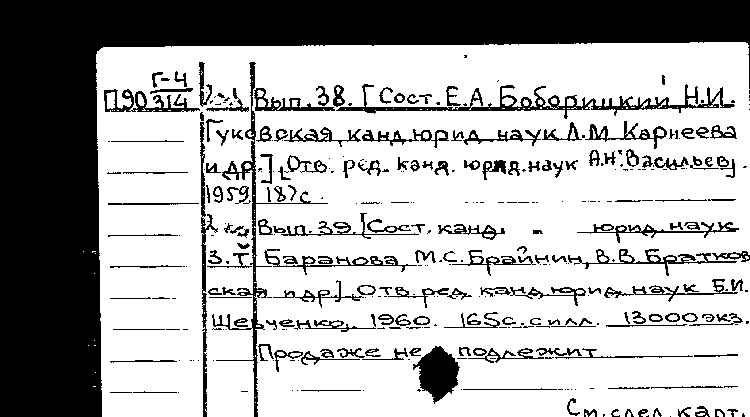 Г-4
П90 314 2-1 Вып. 38. [Сост. Е.А. Боборицкий, Н.И.
Гуковская, канд. юрид. наук Л.М. Карнеева
и др.] Отв. ред. канд. юрид. наук А.Н. Васильев.
1959 187с.
Вып. 39. [Сост. канд. юрид. наук
З.Т. Баранова, М.С. Брайнин, В.В. Братков
ская и др]. Отв. ред. канд. юрид. наук Б.И.
Шевченко. 1960. 165с. с илл. 13000 экз.
Продаже не подлежит
См. след. карт.